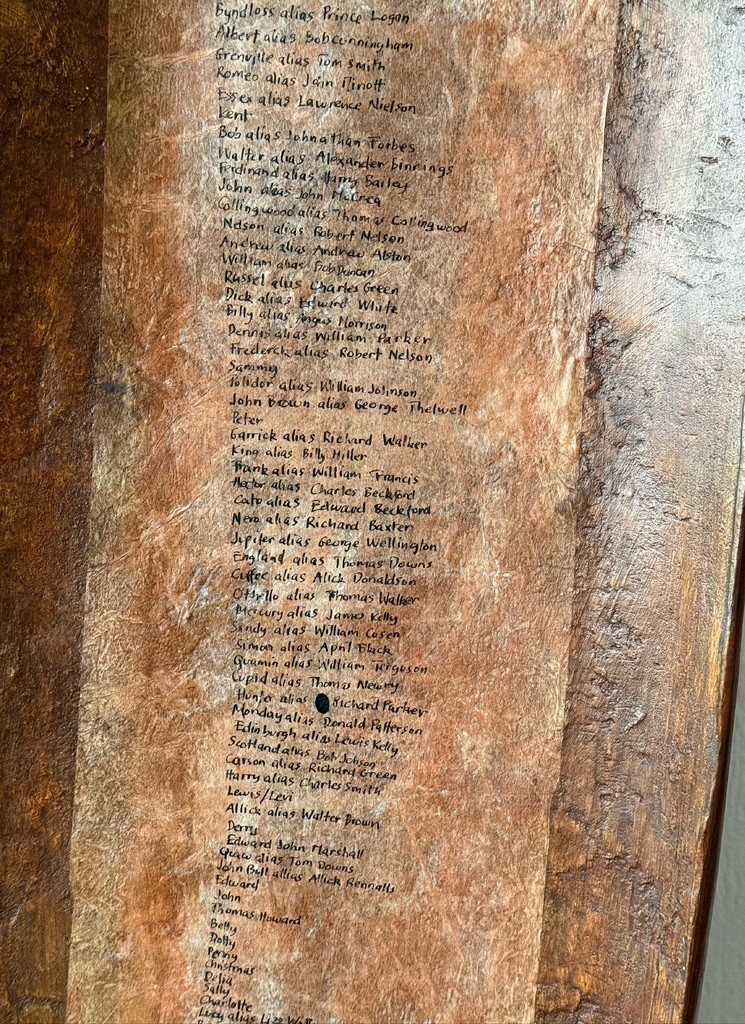 Byndloss alias Prince Logan
Albert alias Bob Cunningham
Grenville alias Tom Smith
Romeo alias John Minott
Essex alias Lawrence Nielson
Kent
Bob alias Johnathan Forbes
Walter alias Alexander Binnings
Ferdinand alias Harry Bailey
John alias John McCrea
Collingwood alias Thomas Collingwood
Nelson alias Robert Nelson
Andrew alias Andrew Alston
William alias Bob Duncan
Russel alias Charles Green
Dick alias Edward White
Billy alias Angus Morrison
Dennis alias William Parker
Frederck alias Robert Nelson
Sammy
Polidor alias William Johnson
John Brown alias George Thelwell
Peter
Garrick alias Richard Walker
King alias Billy Hiller
Frank alias William Francis
Hector alias Charles Beckford
Cato alias Edward Beckford
Nero alias Richard Baxter
Jupiter alias George Wellington
England alias Thomas Downs
Cuffee alias Alick Donaldson
Othello alias Thomas Walker
Mercury alias James Kelly
Sandy alias William Cosen
Simon alias April Black
Quamin alias William Ferguson
Cupid alias Thomas Newry
Hunter alias Richard Parker
Monday alias Donald Patterson
Edinburgh alias Lewis Kelly
Scotland alias Bob Jobson
Carson alias Richard Green
Harry alias Charles Smith
Lewis/Levi
Allick alias Walter Brown
Derry
Edward John Marshall
Quaw alias Tom Downs
John Bull allias Allick Rennalls
Edward
John
Thomas Howard
Betty
Dolly
Penny
Christmas
Delia
Sally
Charlotte
Lucy alias